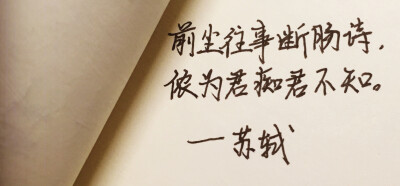 前尘往事断肠诗，
侬为君痴君不知。
——苏轼